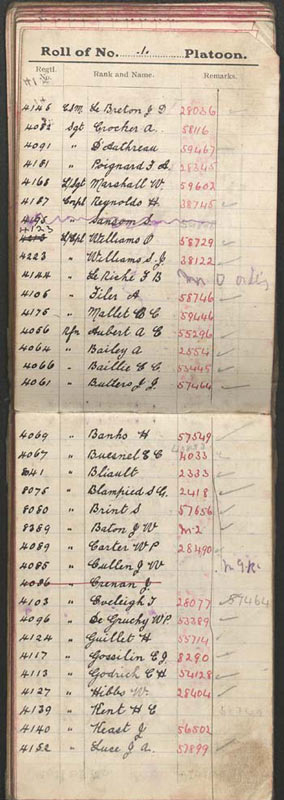 Roll of No. 1. Platoon.
Regtl. No. Rank and Name. Remarks.
4145 CSM Le Breton J D 28036
4082 Sgt Crocher A. 58116
4091 " D'Authreau 59467
4181 " Poignard F A. 28345
4168 L/Sgt Marshall W. 59602
4187 Cnpl Reynolds H 38745
Sansom S
4123
L/Cpl Williams O 58729
4223 " Williams S. J. 38122
4144 " Le Riche F B
4105 " Filer A 58746
4175 " Mallet B C 59446
4056 Rfn Aubert A E 55296
4064 " Bailey A 2554
4066 " Baillie E C. 53445
4061 " Butlers J J. 57464
4069 " Banks H 57549
4067 " Buesnel E C 4033
5041 " Bliault 2333
8075 " Blampied S G. 2418
8080 " Brint S 57656
8389 " Baton J W M-2
4089 " Carter W P 28490
4085 " Cullen J W
4086 " Crenan J.
4103 " Eveleigh F 28077 59464
4096 " De Gruchy W P. 53389
4124 " Guillet H 55714
4117 " Gosselin E J. 8290
4113 " Godrich E H 54128
4127 " Hibbs W. 28404
4139 " Kent H E
4140 " Keast J 56502
4152 " Luce J A. 57899